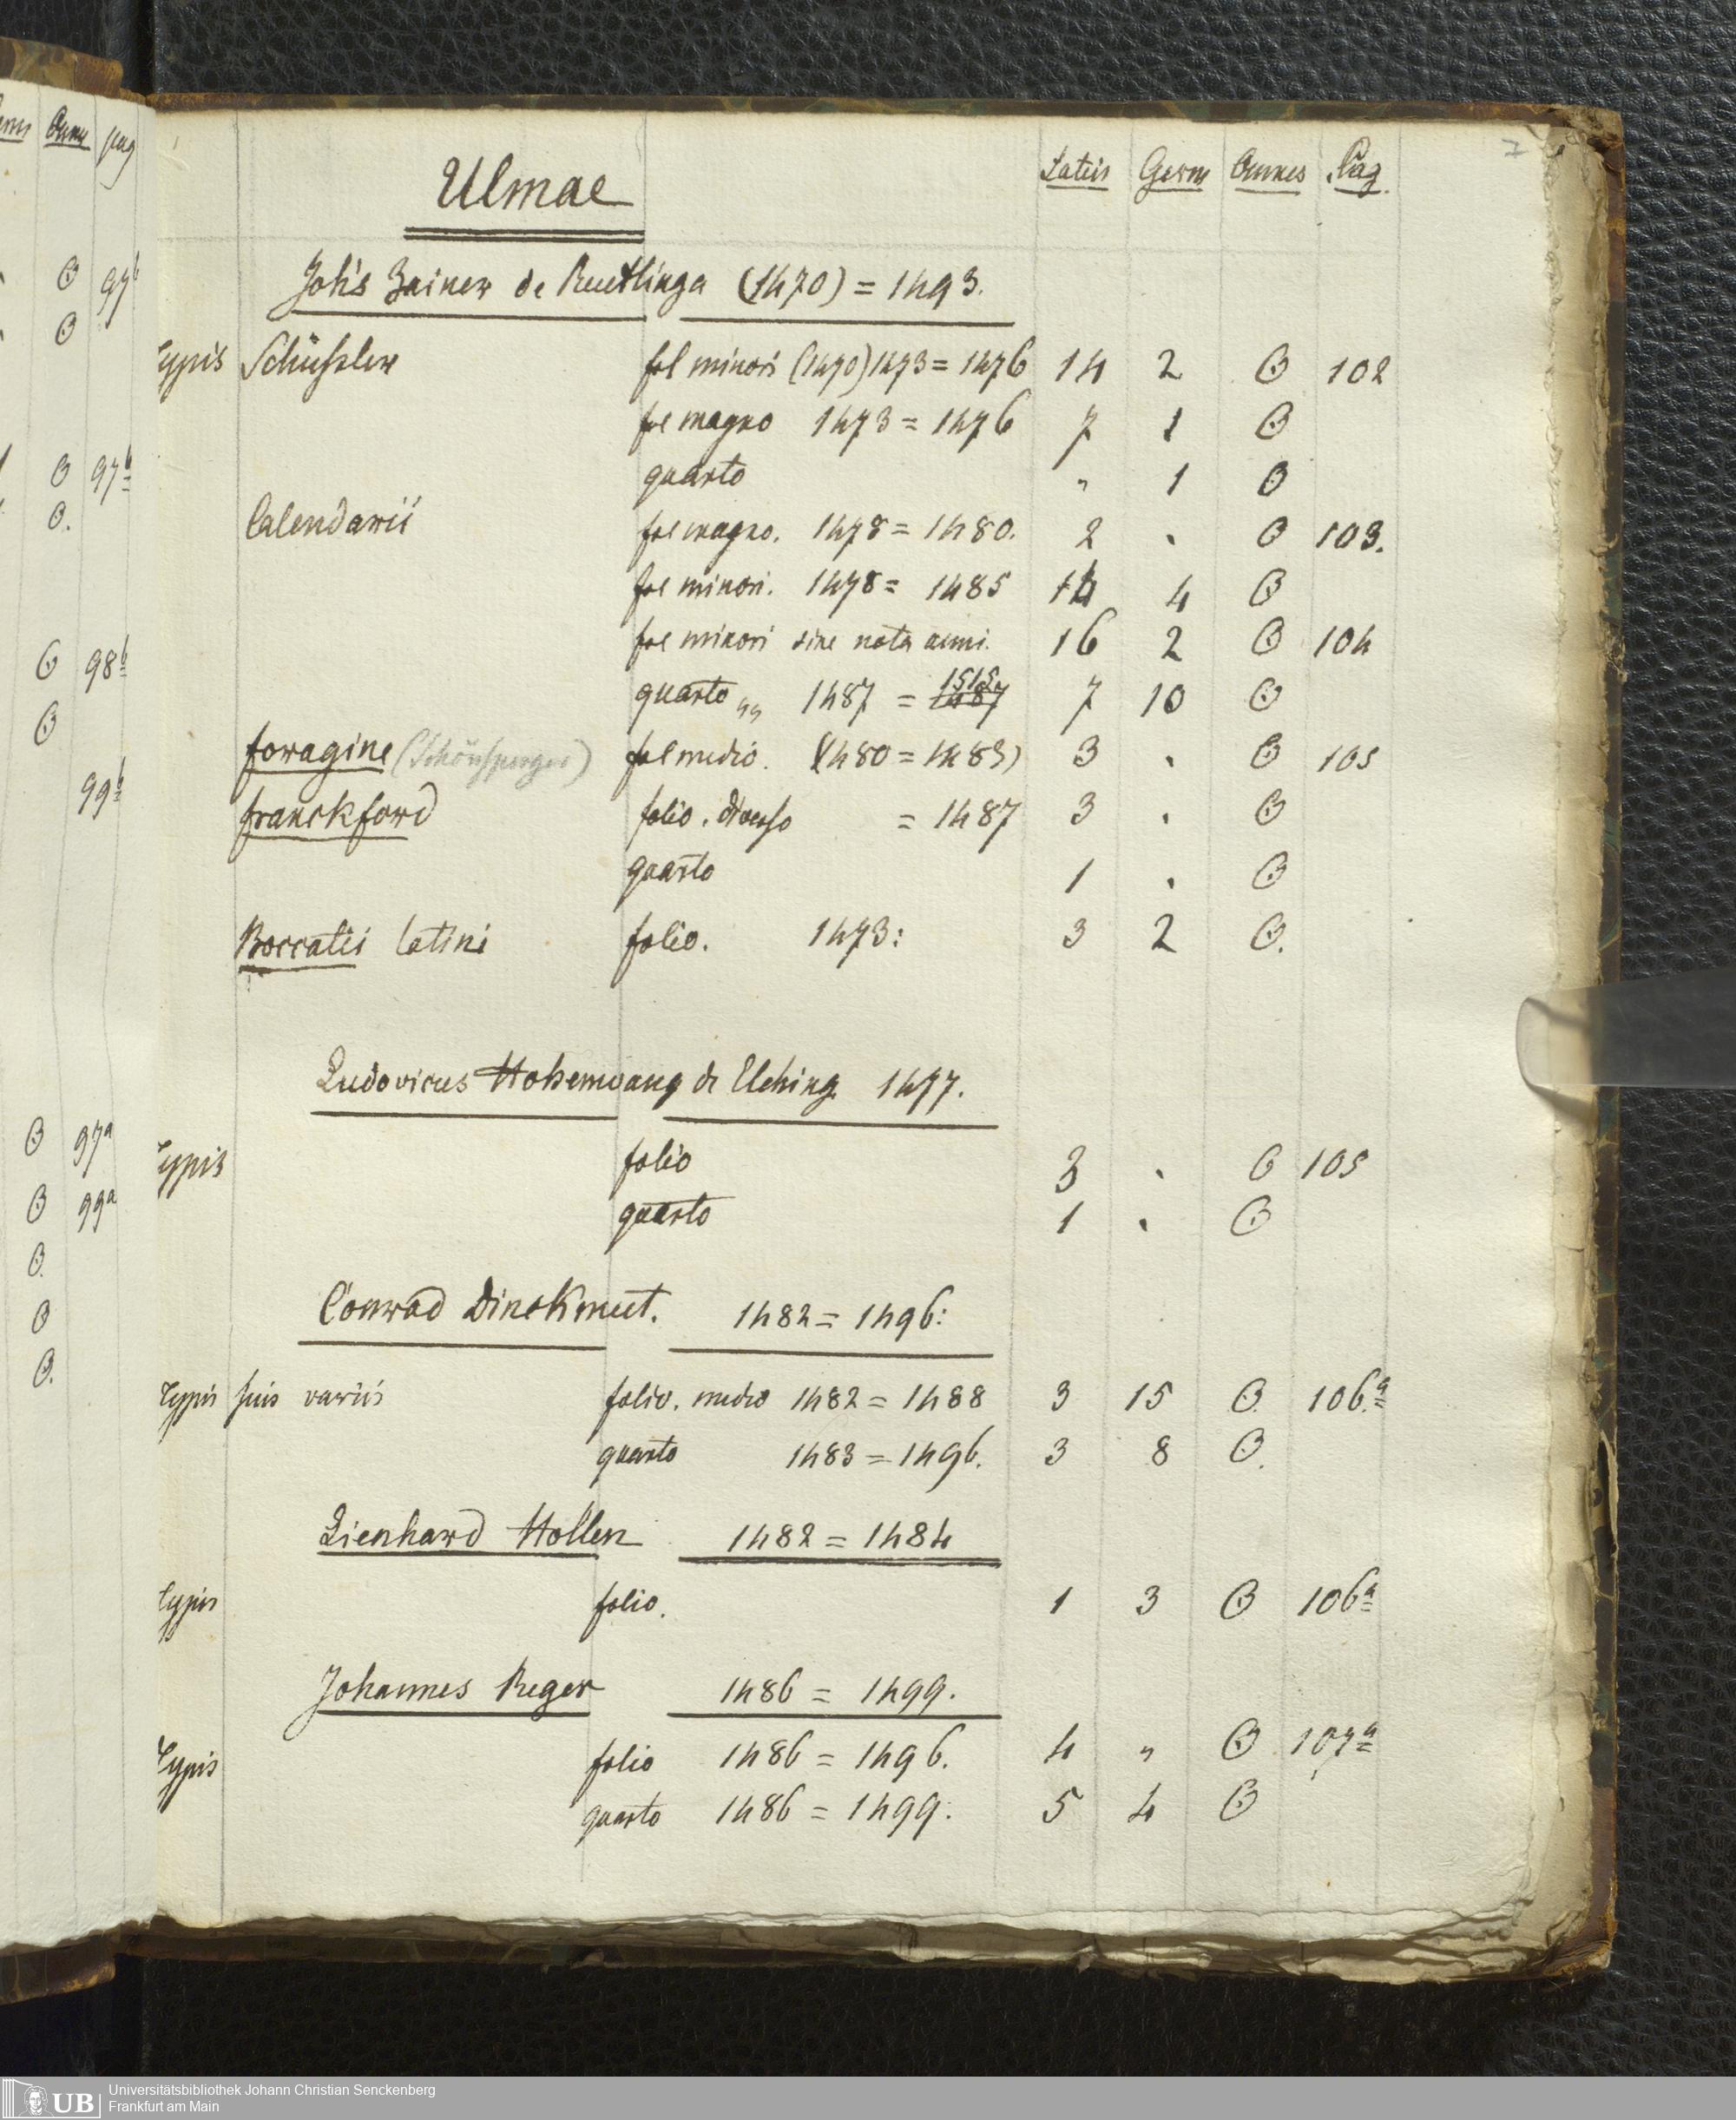 Omnes pag
Θ 97b
Θ
Θ 97b
Θ.
Θ 98b
Θ
99b
Θ 97a
Θ 99a
Θ.
Θ
Θ.
7
Ulmae Latin Germ Omnes Pag.
Joh's Zainer de Reutlinga (1470) = 1493.
Typis Schüssler fol minori (1470) 1473 = 1476 14 2 Θ 102
fol magno 1473 = 1476 7 1 Θ
quarto " 1 Θ
Calendarii fol magno. 1478 = 1480. 2 . Θ 103.
fol minori. 1478 = 1485 14 4 Θ
fol minori sine nota anni. 16 2 Θ 104
quarto „„ 1487 = 1515 1487 7 10 Θ
foragine (Schönsperger) fol medio. (1480 = 1483) 3 . Θ 105
franckford folio. diverso = 1487 3 . Θ
quarto 1 . Θ
Boccatii latini folio. 1473: 3 2 Θ.
Ludovicus Hohenwang de Elching. 1477.
Typis folio 3 . Θ 105
quarto 1 . Θ
Conrad Dinckmut. 1482 = 1496:
Typis suis variis folio. medio 1482 = 1488 3 15 Θ. 106.a
quarto 1483 = 1496. 3 8 Θ.
Lienhard Hollen 1482 = 1484
Typis folio. 1 3 Θ 106a
Johannes Reger 1486 = 1499.
Typis folio 1486 = 1496. 4 " Θ 107a
quarto 1486 = 1499. 5 4 Θ
UB Universitätsbibliothek Johann Christian Senckenberg
Frankfurt am Main